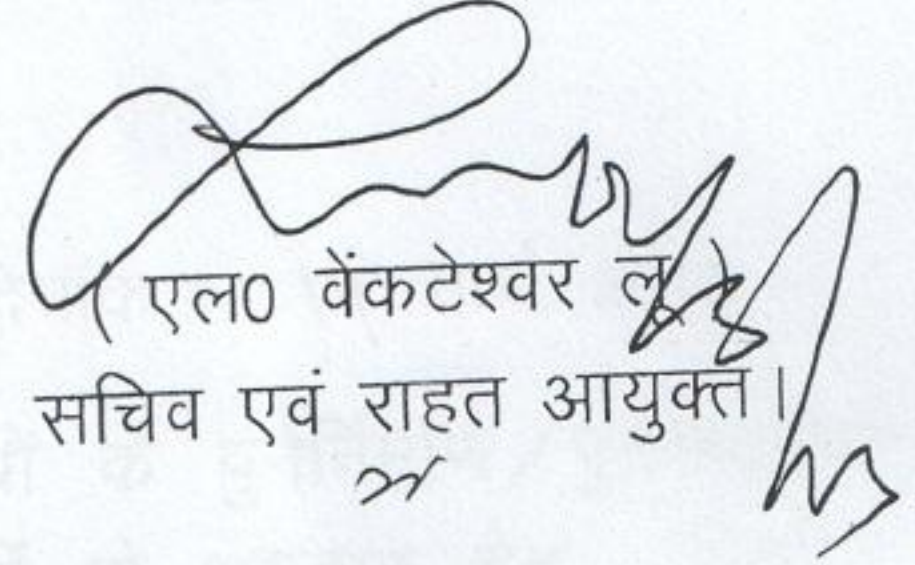 ( एल0 वेंकटेश्वर लू )
सचिव एवं राहत आयुक्त।